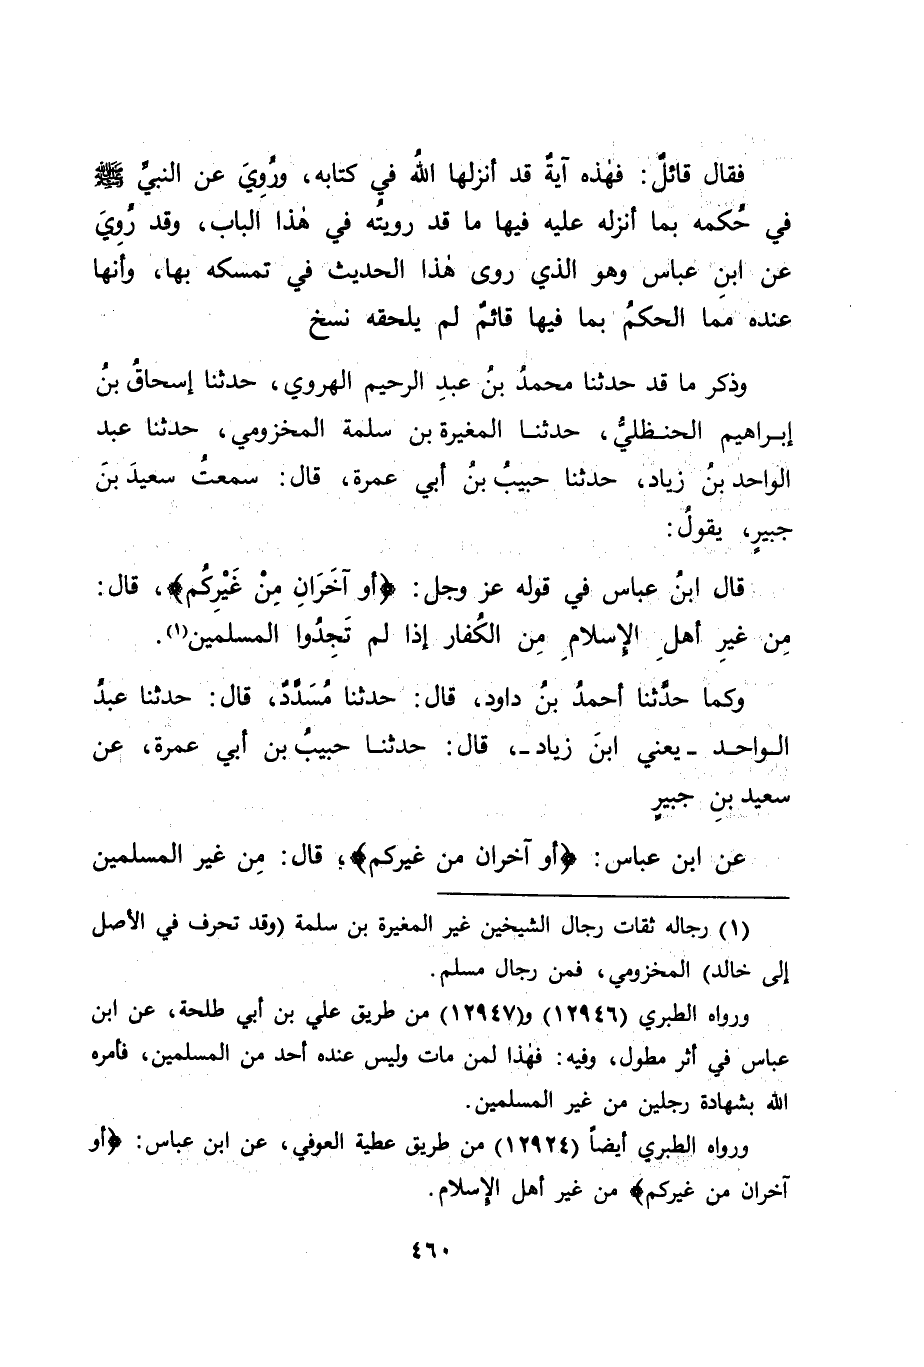 فقال قائلٌ: فهٰذه آيةٌ قد أنزلها اللهُ في كتابه، ورُوِيَ عن النبيِّ ﷺ
في حُكمه بما أنزله عليه فيها ما قد رويتُه في هٰذا الباب، وقد رُوِيَ
عن ابنِ عباس وهو الذي روى هٰذا الحديث في تمسكه بها، وأنها
عنده مما الحكمُ بما فيها قائمٌ لم يلحقه نسخ
وذكر ما قد حدثنا محمدُ بنُ عبدِ الرحيم الهروي، حدثنا إسحاقُ بنُ
إبراهيم الحنظليُّ، حدثنا المغيرة بن سلمة المخزومي، حدثنا عبد
الواحد بنُ زياد، حدثنا حبيبُ بنُ أبي عمرة، قال: سمعتُ سعيدَ بنَ
جبيرٍ، يقولُ:
قال ابنُ عباس في قوله عز وجل: ﴿أو آخَرَانِ مِنْ غَيْرِكُم﴾، قال:
مِن غيرِ أهلِ الإِسلامِ مِن الكُفار إذا لم تَجِدُوا المسلمين(١).
وكما حدَّثنا أحمدُ بنُ داود، قال: حدثنا مُسَدَّدٌ، قال: حدثنا عبدُ
الواحد ـ يعني ابنَ زياد ـ، قال: حدثنا حبيبُ بن أبي عمرة، عن
سعيد بنِ جبيرٍ
عن ابن عباس: ﴿أو آخران من غيركم﴾؛ قال: مِن غير المسلمين
(١) رجاله ثقات رجال الشيخين غير المغيرة بن سلمة (وقد تحرف في الأصل
إلى خالد) المخزومي، فمن رجال مسلم.
ورواه الطبري (١٢٩٤٦) و(١٢٩٤٧) من طريق علي بن أبي طلحة، عن ابن
عباس في أثر مطول، وفيه: فهٰذا لمن مات وليس عنده أحد من المسلمين، فأمره
الله بشهادة رجلين من غير المسلمين.
ورواه الطبري أيضاً (١٢٩٢٤) من طريق عطية العوفي، عن ابن عباس: ﴿أو
آخران من غيركم﴾ من غير أهل الإِسلام.
٤٦٠